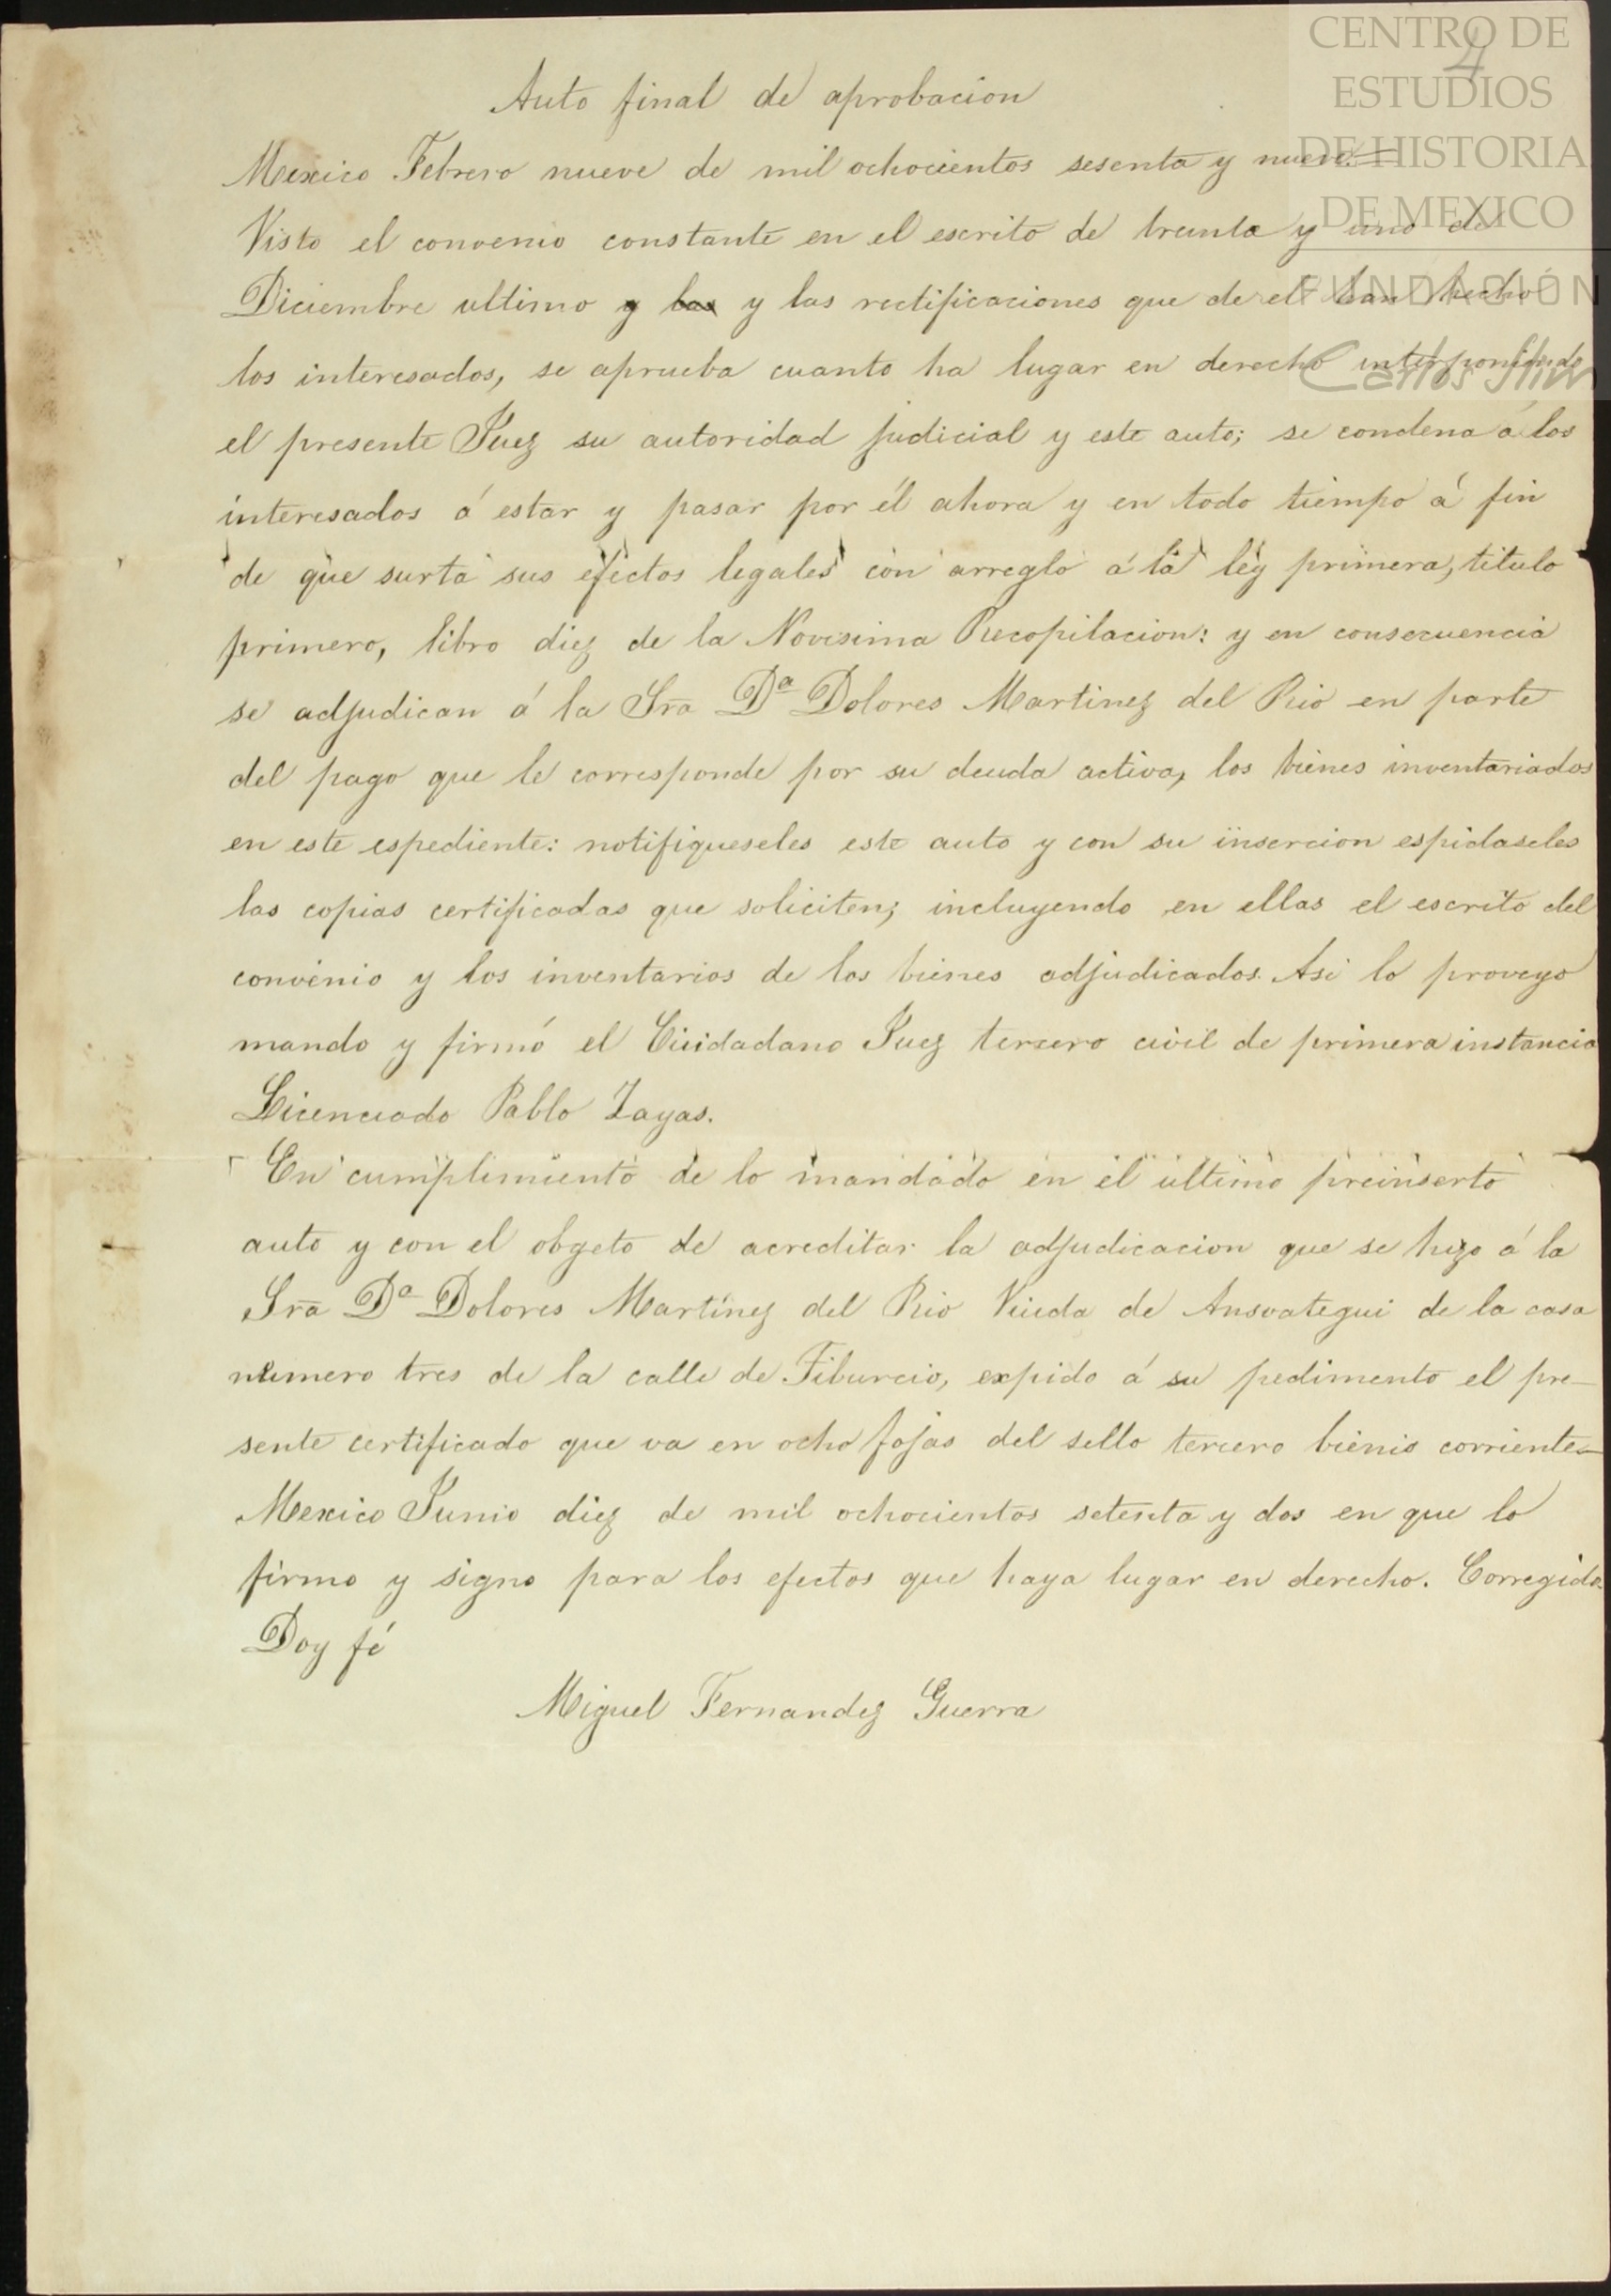 CENTRO DE
ESTUDIOS
DE HISTORIA
DE MEXICO
FUNDACIÓN
Carlos Slim
4
Auto final de aprobacion
Mexico Febrero nueve de mil ochocientos sesenta y nueve.=
Visto el convenio constante en el escrito de treinta y uno de
Diciembre ultimo y las y las rectificaciones que de el han hecho
los interesados, se aprueba cuanto ha lugar en derecho interponiendo
el presente Juez su autoridad judicial y este auto; se condena á los
interesados á estar y pasar por él ahora y en todo tiempo á fin
de que surta sus efectos legales con arreglo á la ley primera, titulo
primero, libro diez de la Novisima Recopilacion: y en consecuencia
se adjudican á la Sra Dª Dolores Martinez del Rio en parte
del pago que le corresponde por su deuda activa, los bienes inventariados
en este espediente: notifiqueseles este auto y con su insercion espidaseles
las copias certificadas que soliciten; incluyendo en ellas el escrito del
convenio y los inventarios de los bienes adjudicados. Asi lo proveyo
mando y firmó el Ciudadano Juez tercero civil de primera instancia
Licenciado Pablo Zayas.
En cumplimiento de lo mandado en el ultimo preinserto
auto y con el objeto de acreditar la adjudicacion que se hizo á la
Sra Dª Dolores Martínez del Rio Viuda de Ansoategui de la casa
numero tres de la calle de Tiburcio, expido á su pedimento el pre-
sente certificado que va en ocho fojas del sello tercero bienio corriente-
Mexico Junio diez de mil ochocientos setenta y dos en que lo
firmo y signo para los efectos que haya lugar en derecho. Corregido.
Doy fé
Miguel Fernandez Guerra